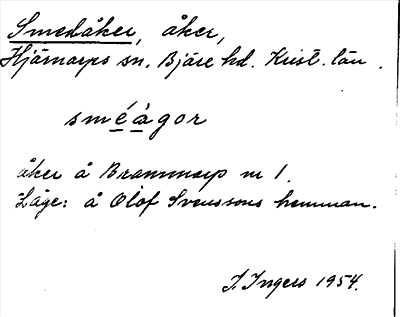 Smedåker, åker,
Hjärnarps sn. Bjäre hd. Krist. län.
sméågor
åker å Brammarp nr 1.
Läge: å Olof Svenssons hemman.
I. Ingers 1954.